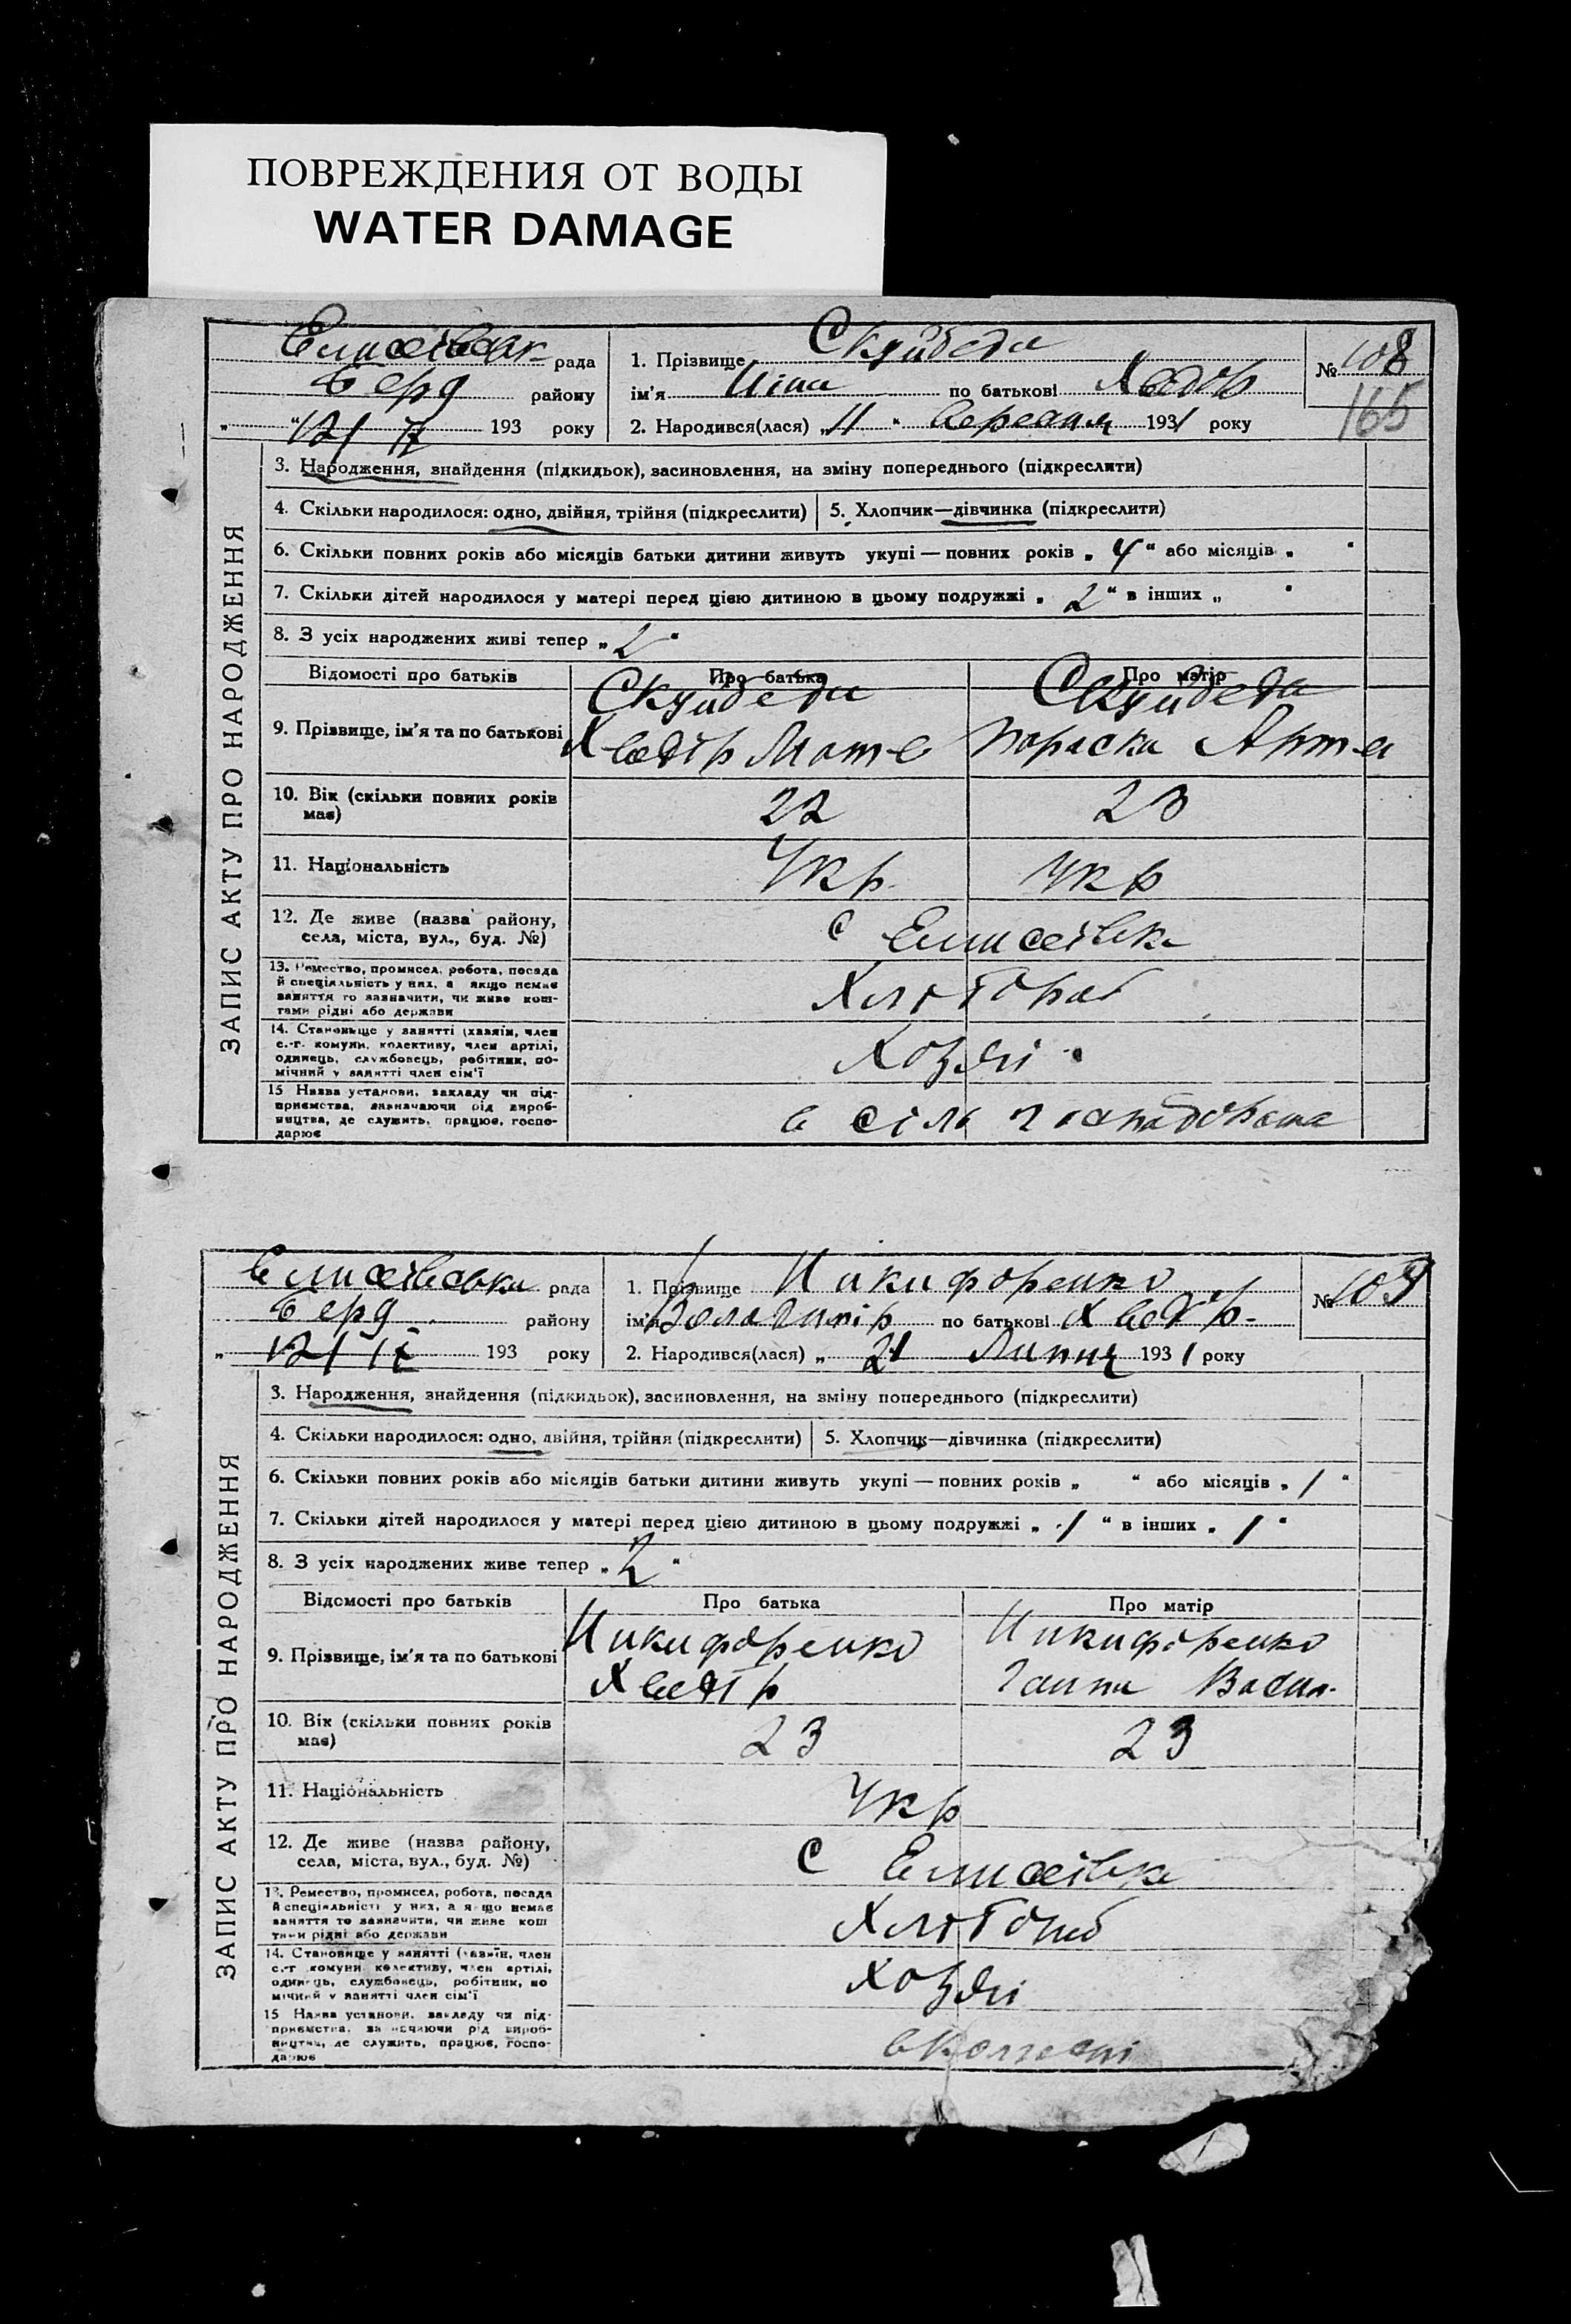 ПОВРЕЖДЕНИЯ ОТ ВОДЫ
WATER DAMAGE
Єлисеївськ рада
Берд району
" 12/ IX 193 року
1. Прізвище Скуйбеда
ім'я Ніна по батькові Хведор
2. Народився(лася) „11" Вересня 1931 року
№ 108
165
ЗАПИС АКТУ ПРО НАРОДЖЕННЯ
3. Народження, знайдення (підкидьок), засиновлення, на зміну попереднього (підкреслити)
4. Скільки народилося: одно, двійня, трійня (підкреслити)
5. Хлопчик—дівчинка (підкреслити)
6. Скільки повних років або місяців батьки дитини живуть укупі — повних років „ 4 " або місяців „ "
7. Скільки дітей народилося у матері перед цією дитиною в цьому подружжі „ 2 " в інших „ "
8. З усіх народжених живі тепер „ 2 "
Відомості про батьків Про батька Про матір
9. Прізвище, ім'я та по батькові
Скуйбеда
Хведір Матв
Скуйбеда
Параска Артем
10. Вік (скільки повних років має) 22 23
11. Національність Укр Укр
12. Де живе (назва району, села, міста, вул., буд. №) с Єлисеївка
13. Ремество, промисел, робота, посада й спеціяльність у них, а якщо немає заняття то зазначити, чи живе коштами рідні або держави Хлібороб
14. Становище у занятті (хазяїн, член с.-г. комуни, колективу, член артілі, одинець, службовець, робітник, помічний у занятті член сім'ї Хозяї
15 Назва установи, закладу чи підприємства, зазначаючи рід виробництва, де служить, працює, господарює
в сіль
Єлисеївська рада
Берд. району
„ 12/ IX 193 року
1. Прізвище Никифоренко
ім'я Володимір по батькові Хведор
2. Народився(лася) „ 21 Липня 1931 року
№ 109
ЗАПИС АКТУ ПРО НАРОДЖЕННЯ
3. Народження, знайдення (підкидьок), засиновлення, на зміну попереднього (підкреслити)
4. Скільки народилося: одно, двійня, трійня (підкреслити)
5. Хлопчик—дівчинка (підкреслити)
6. Скільки повних років або місяців батьки дитини живуть укупі — повних років „ " або місяців „ 1 "
7. Скільки дітей народилося у матері перед цією дитиною в цьому подружжі „ 1 " в інших „ 1 "
8. З усіх народжених живе тепер „ 2 "
Відомості про батьків Про батька Про матір
9. Прізвище, ім'я та по батькові
Никифоренко
Хведір
Никифоренко
Ганна Васил.
10. Вік (скільки повних років має) 23 23
11. Національність Укр
12. Де живе (назва району, села, міста, вул., буд. №) с Єлисеївка
13. Ремество, промисел, робота, посада й спеціяльність у них, а якщо немає заняття то зазначити, чи живе коштами рідні або держави Хлібороб
14. Становище у занятті (хазяїн, член с.-г комуни колективу, член артілі, одинець, службовець, робітник, помічний у занятті член сім'ї Хозяї
15 Назва установи, закладу чи підприємства, зазначаючи рід виробництва, де служить, працює, господарює
в колгоспі